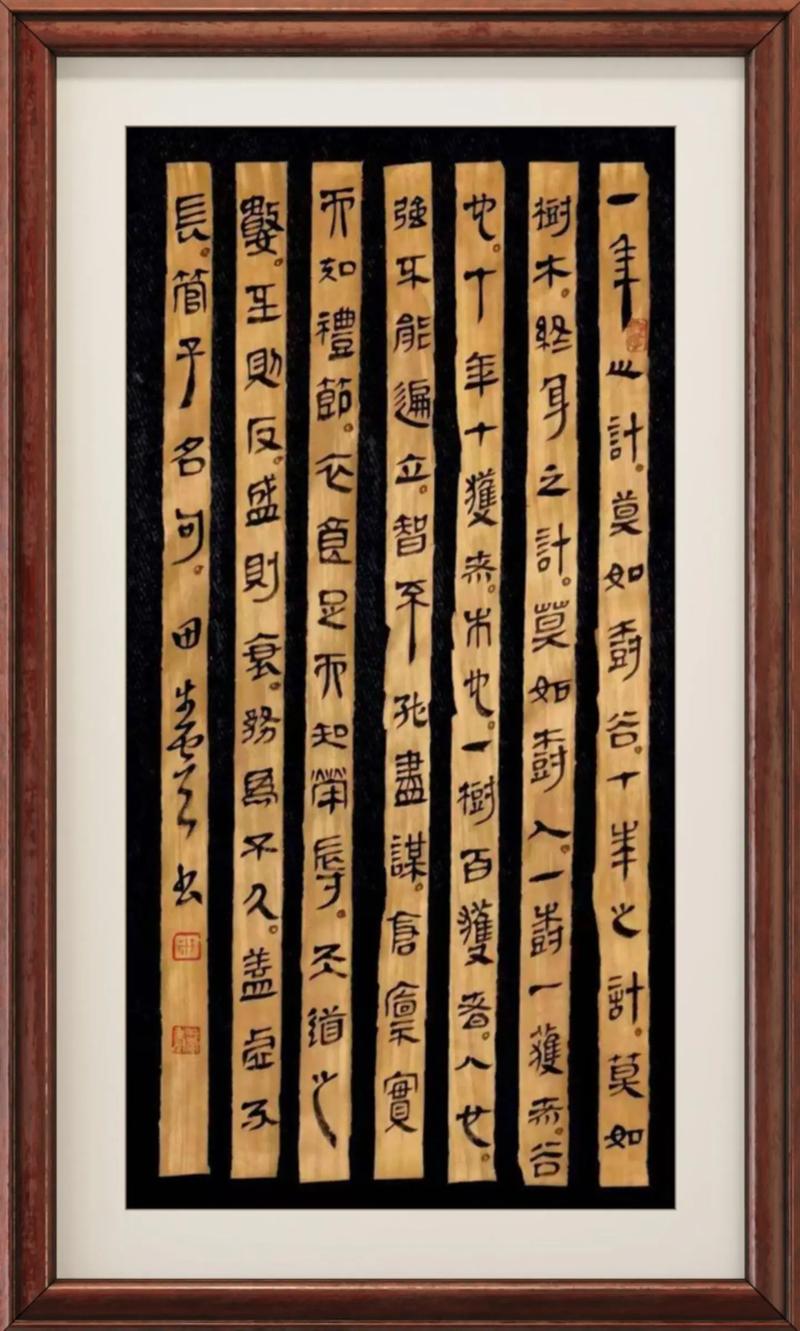 一年之計。莫如樹谷。十年之計。莫如
樹木。終身之計。莫如樹人。一樹一獲者。谷
也。十年十獲者。木也。一樹百獲者。人也。
強不能遍立。智不能盡謀。倉廩實
而知禮節。衣食足而知榮辱。天道之
數。至則反。盛則衰。務爲不久。蓋虛不
長。管子名句。田書